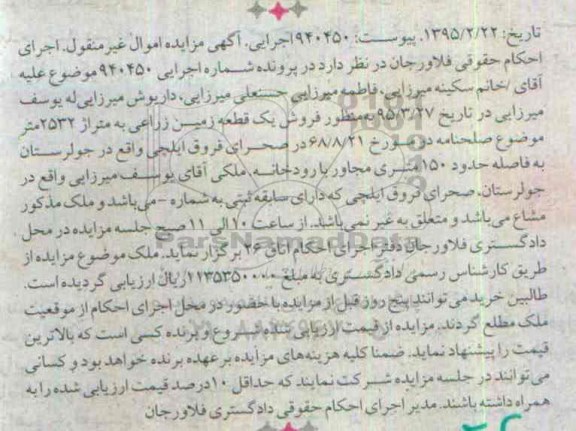 تاریخ: ۱۳۹۵/۲/۲۲. پیوست: ۹۴۰۴۵۰اجرایی. آگهی مزایده اموال غیرمنقول. اجرای
احکام حقوقی فلاورجان در نظر دارد در پرونده شماره اجرایی ۹۴۰۴۵۰ موضوع علیه
آقای /خانم سکینه میرزایی، فاطمه میرزایی حسنعلی میرزایی، داریوش میرزایی له یوسف
میرزایی در تاریخ ۹۵/۳/۲۷ به منظور فروش یک قطعه زمین زراعی به متراژ ۲۵۳۲متر
موضوع صلحنامه در مورخ ۶۸/۸/۲۱ در صحرای فروق ایلچی واقع در جولرستان
به فاصله حدود ۱۵۰ متری مجاور با رودخانه. ملکی آقای یوسف میرزایی واقع در
جولرستان. صحرای فروق ایلچی که دارای سابقه ثبتی به شماره - می باشد و ملک مذکور
مشاع می باشد و متعلق به غیر نمی باشد. از ساعت ۱۰ الی ۱۱ صبح جلسه مزایده در محل
دادگستری فلاورجان دفتر اجرای احکام اتاق ۲۶ برگزار نماید. ملک موضوع مزایده از
طریق کارشناس رسمی دادگستری به مبلغ ۱۱۳۵۳۵۰۰۰۰ ریال ارزیابی گردیده است.
طالبین خرید می توانند پنج روز قبل از مزایده با حضور در محل اجرای احکام از موقعیت
ملک مطلع گردند. مزایده از قیمت ارزیابی شده شروع و برنده کسی است که بالاترین
قیمت را پیشنهاد نماید. ضمنا کلیه هزینه های مزایده بر عهده برنده خواهد بود و کسانی
می توانند در جلسه مزایده شرکت نمایند که حداقل ۱۰درصد قیمت ارزیابی شده را به
همراه داشته باشند. مدیر اجرای احکام حقوقی دادگستری فلاورجان
ParsNamadData